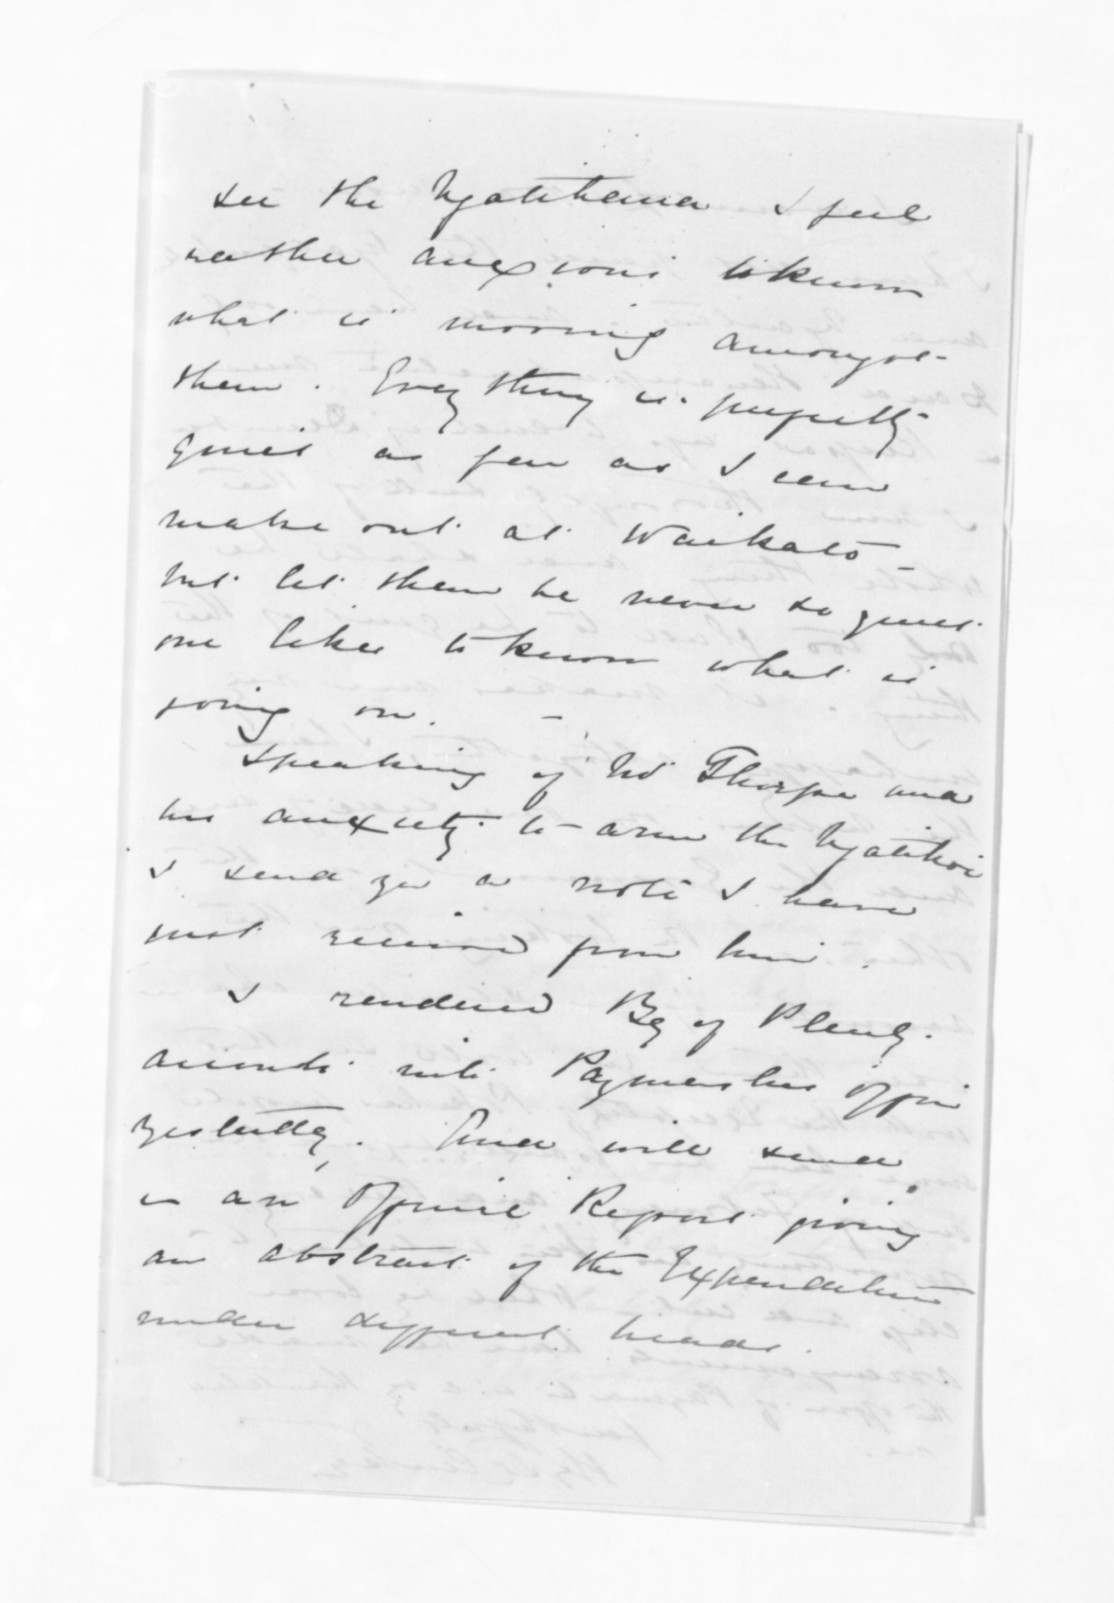 see the Ngatihaua I feel
rather anxious to know
what is moving amongst
them. Every thing is perfectly
quiet as far as I can
make out at Waikato -
but let them be never so quiet
one likes to know what is
going on. -
Speaking of Mr Thorpe and
his anxiety to arm the Ngatikoi
I send you a note I have
just received from him.
I rendered Bay of Plenty
accounts into Paymasters Office
yesterday. And will send
in an Official Report giving
an abstract of the Expenditure
under different heads.